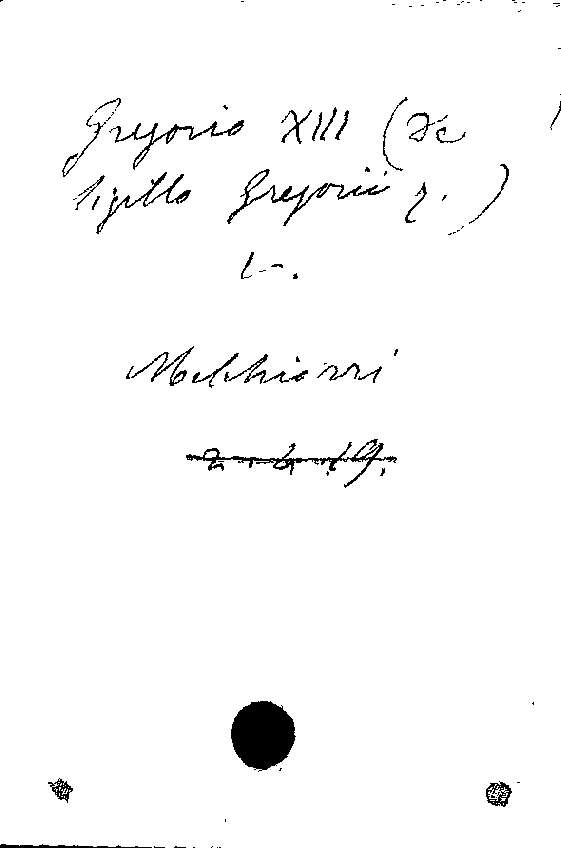 Gregorio XIII (De
sigillo Gregorii 7.)
L-.
Melchiorri
2. 6. 19.